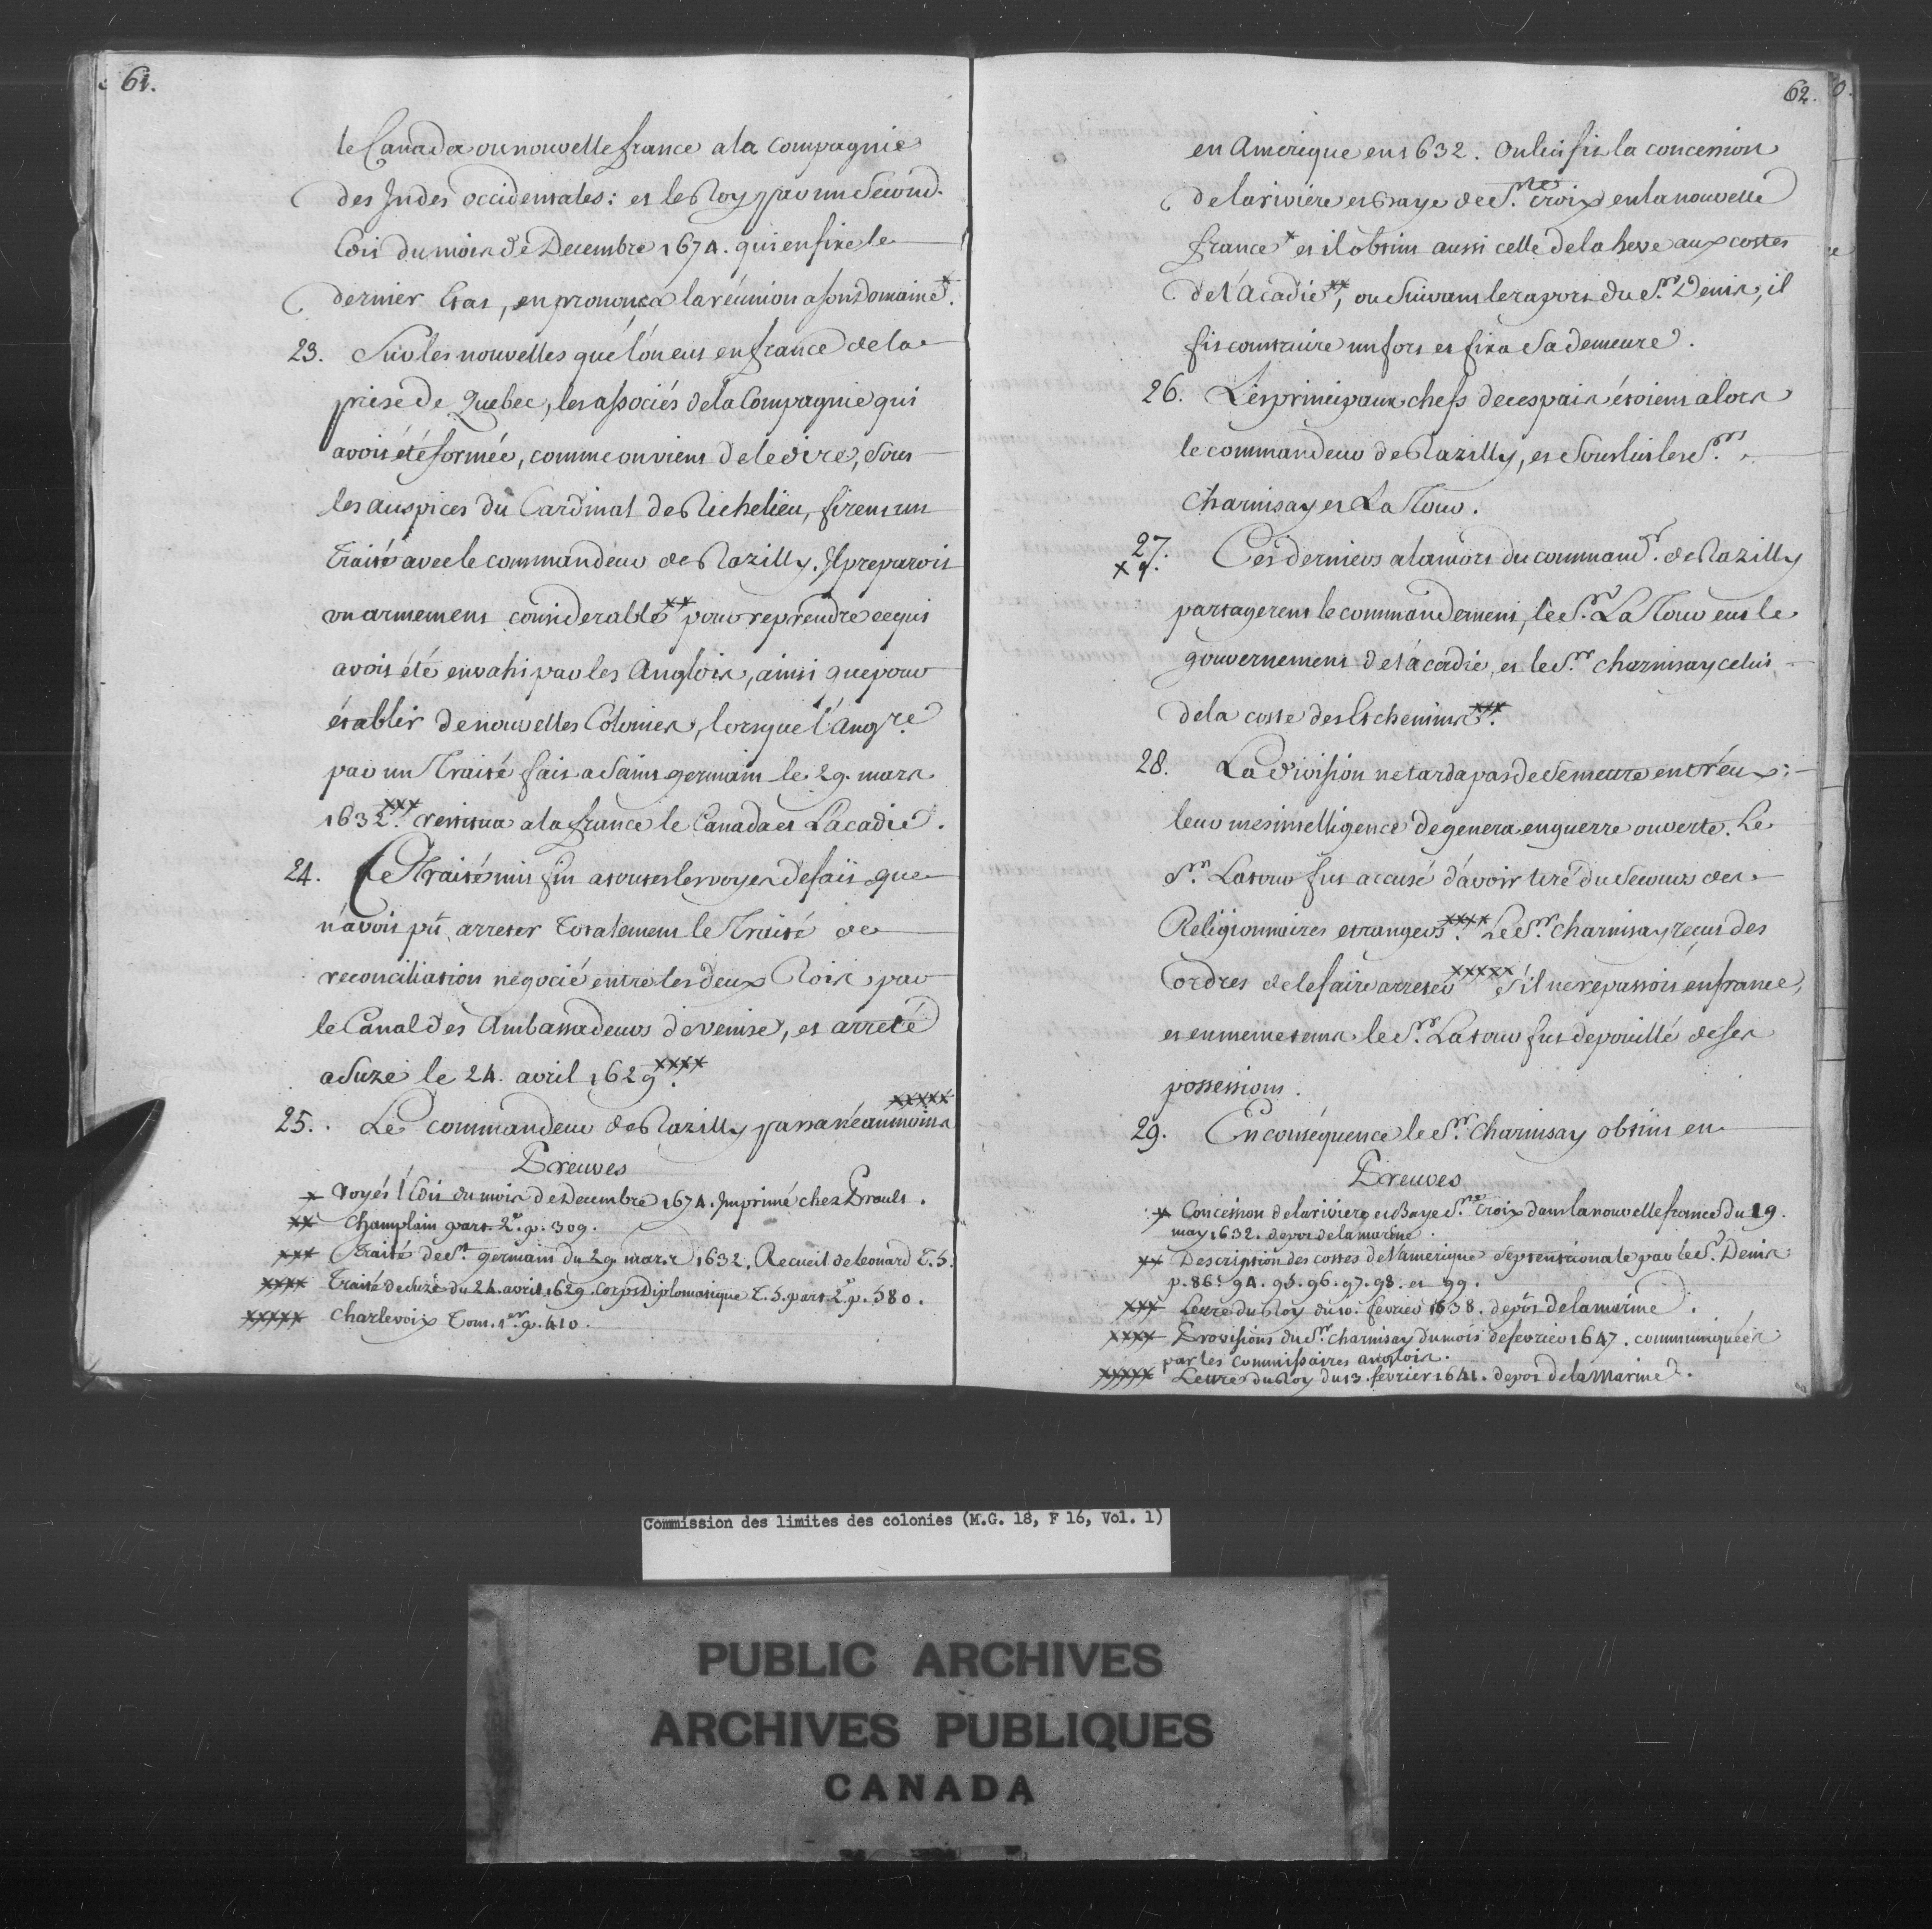 61.
le Canada ou nouvelle france a la Compagnie
des Indes occidentales: et le Roy par un Second
Edit du mois de Decembre 1674. qui en fixe le
dernier Etat, en prononça la réunion a son Domaine x.
23. Sur les nouvelles que l'on eut en france de la
prise de Quebec, les associés de la Compagnie qui
avoit été formée, comme on vient de le dire, sous
les auspices du Cardinal de Richelieu, firent un
Traité avec le commandeur de Razilly. Il preparoit
un armement considerable xx pour reprendre ce qui
avoit été envahi par les Anglois, ainsi que pour
établir de nouvelles Colonies, lorsque l'Angre.
par un Traité fait a Saint germain le 29. mars
1632 xxx. restitua a la france le Canada et Lacadie.
24. Ce Traité mit fin a toutes les voyes de fait que
n'avoit pû arreter totalement le Traité de
reconciliation negocié entre les deux Rois par
le Canal des Ambassadeurs de venise, et arreté
a Suze le 24. avril 1629 xxxx.
25. Le commandeur de Razilly passa néanmoins xxxxx
Preuves
x Voyés l'Edit du mois de Decembre 1674. Imprimé chez Prault.
xx Champlain part. 2e. p. 309.
xxx Traité de St. germain du 29. mars 1632. Recueil de leonard T. 5.
xxxx Traité de Suze du 24. avril 1629. Corps Diplomatique T. 5. part. 2e. p. 580.
xxxxx Charlevoix Tom. 1er. p. 410.
62.
en Amerique en 1632. On lui fit la concession
de la riviere et Baye de Ste. Croix en la nouvelle
france x et il obtint aussi celle de la heve aux costes
de l'Acadie xx, ou suivant le raport du Sr. Denis, il
fit construire un fort et fixa Sa demeure.
26. Les principaux chefs de ces pais étoient alors
le commandeur de Razilly, et sous lui les Srs.
Charnisay et La Tour.
27. Ces derniers a la mort du commandr. de Razilly
x
partagerent le commandement, le Sr. La Tour eut le
gouvernement de l'acadie, et le Sr. Charnisay celui
de la coste des Etchemins xxx.
28. La division ne tarda pas de se mettre entr'eux:
leur mesintelligence degenera en guerre ouverte. Le
Sr. Latour fut accusé d'avoir tiré du Secours des
Religionnaires etrangers xxxx. Le Sr. Charnisay reçut des
ordres de le faire arreter xxxxx s'il ne repassoit en france,
et en meme tems le Sr. Latour fut depouillé de ses
possessions.
29. En conséquence le Sr. Charnisay obtint en
Preuves
x Concession de la riviere et Baye Ste. Croix dans la nouvelle france du 19.
may 1632. depot de la marine.
xx Description des costes de l'amerique septentrionale par le Sr. Denis
p. 86. 94. 95. 96. 97. 98. et 99.
xxx Lettre du Roy du 10. fevrier 1638. depôt de la marine.
xxxx Provisions du Sr. Charnisay du mois de fevrier 1647. communiquées
par les commissaires anglois.
xxxxx Lettre du Roy du 13. fevrier 1641. depot de la Marine.
Commission des limites des colonies (M.G. 18, F 16, Vol. 1)
PUBLIC ARCHIVES
ARCHIVES PUBLIQUES
CANADA